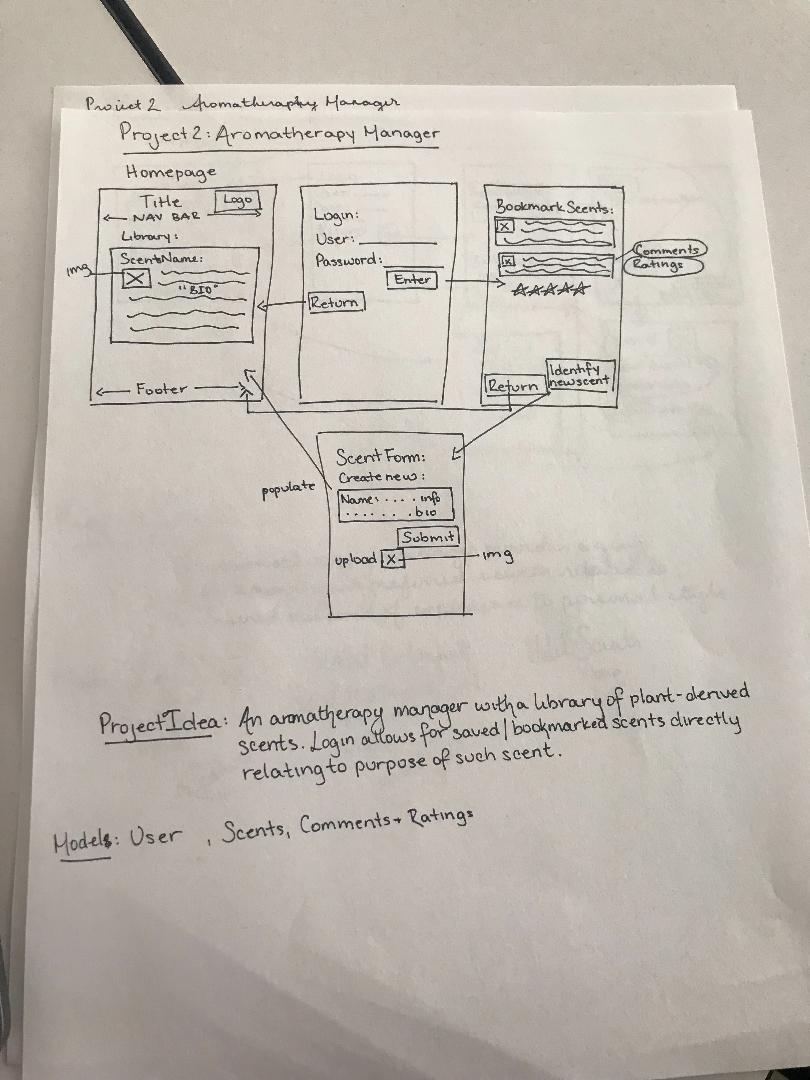 Project 2 Aromatheraphy Manager
Project 2: Aromatherapy Manager
Homepage
Title
Logo
NAV BAR
Library:
Scent Name:
img
"BIO"
Footer
Login:
User:
Password:
Enter
Return
Bookmark Scents:
Comments
Ratings
Return
Identify
new scent
Scent Form:
Create new:
populate
Name: . . . . info
. . . . . . . bio
Submit
upload
img
Project Idea: An aromatherapy manager with a library of plant-derived
scents. Login allows for saved/bookmarked scents directly
relating to purpose of such scent.
Models: User , Scents, Comments + Ratings